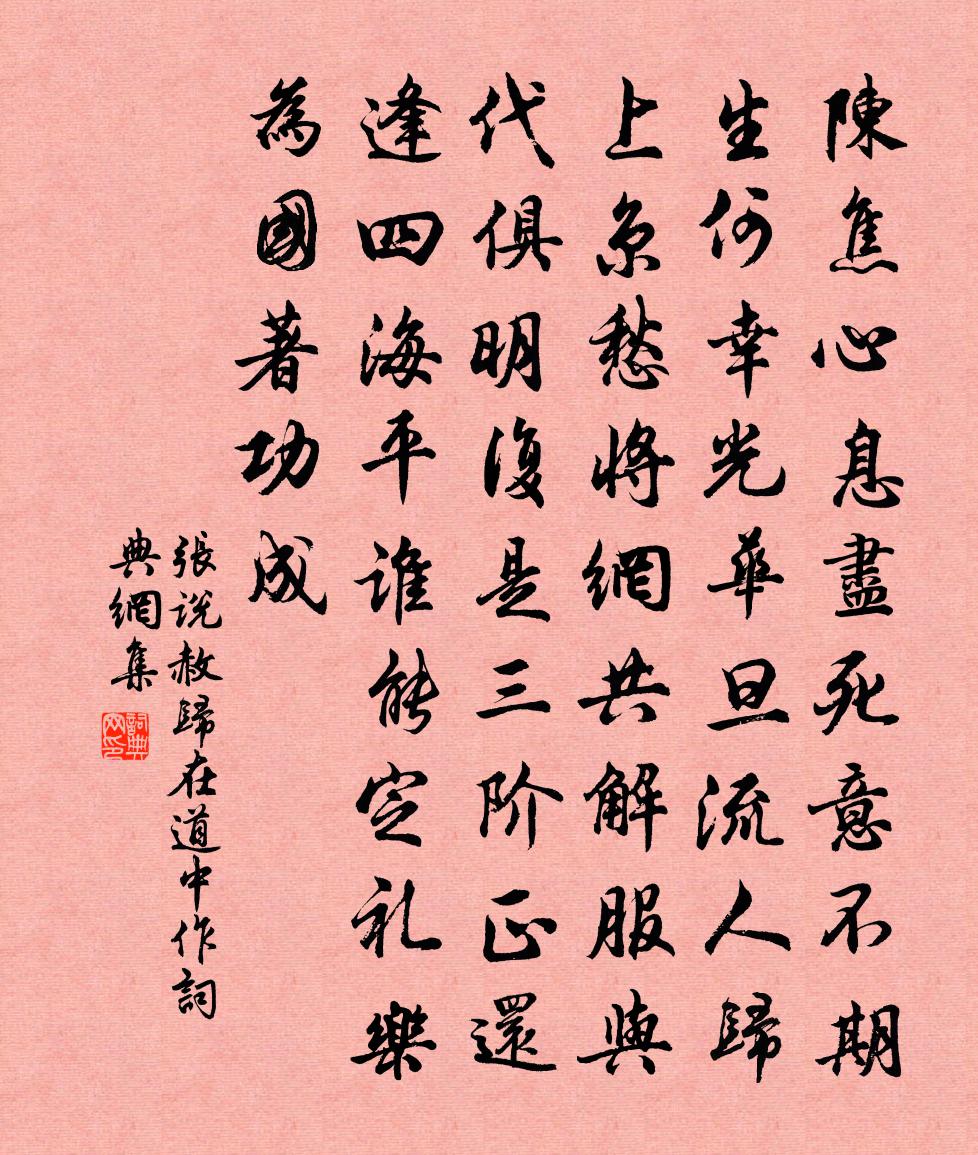 陳焦心息盡死意不期
生何幸光華旦流人歸
上京愁將網共解服與
代俱明復是三阶正還
逢四海平谁能定礼樂
為國著功成
張说赦歸在道中作詞
典網集
詞典网印